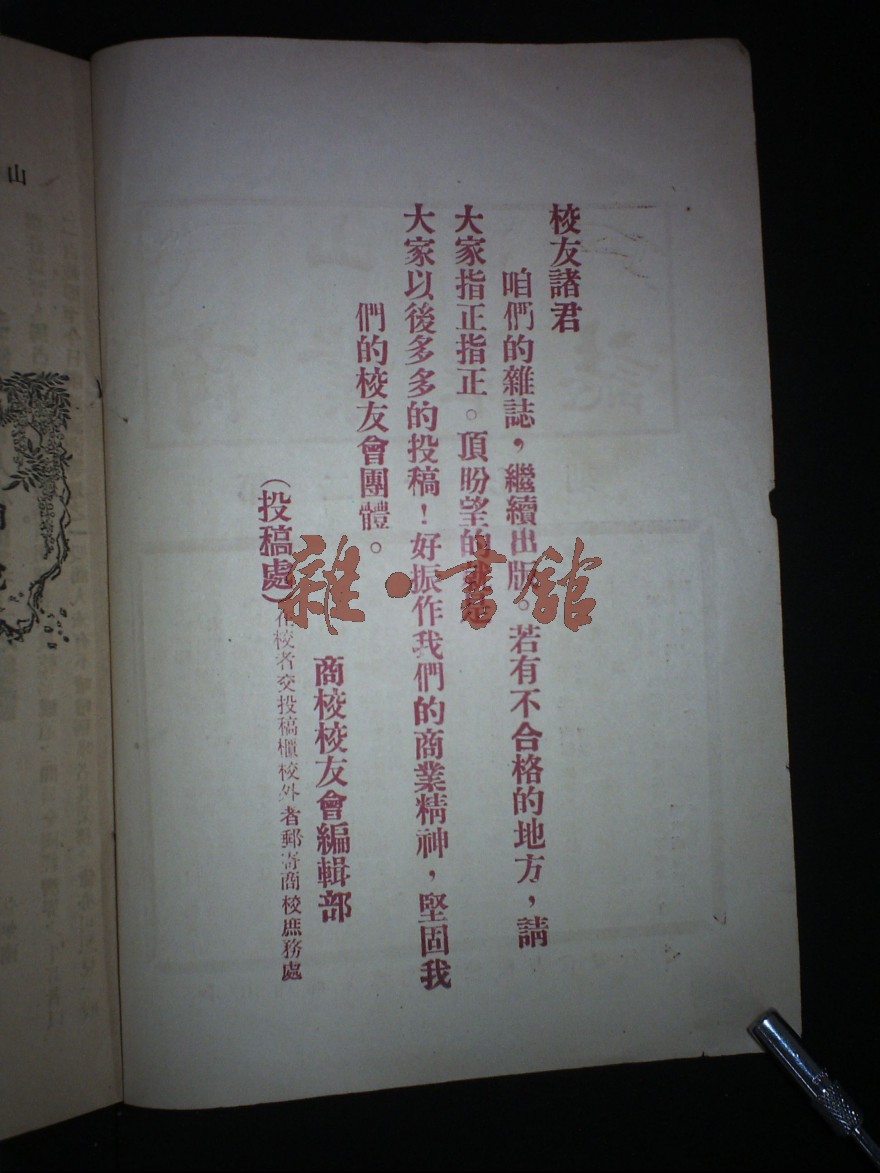 校友諸君
咱們的雜誌，繼續出版。若有不合格的地方，請
大家指正指正。頂盼望的就是
大家以後多多的投稿！好振作我們的商業精神，堅固我
們的校友會團體。
商校校友會編輯部
（投稿處）在校者交投稿櫃校外者郵寄商校庶務處
雜·書館
山